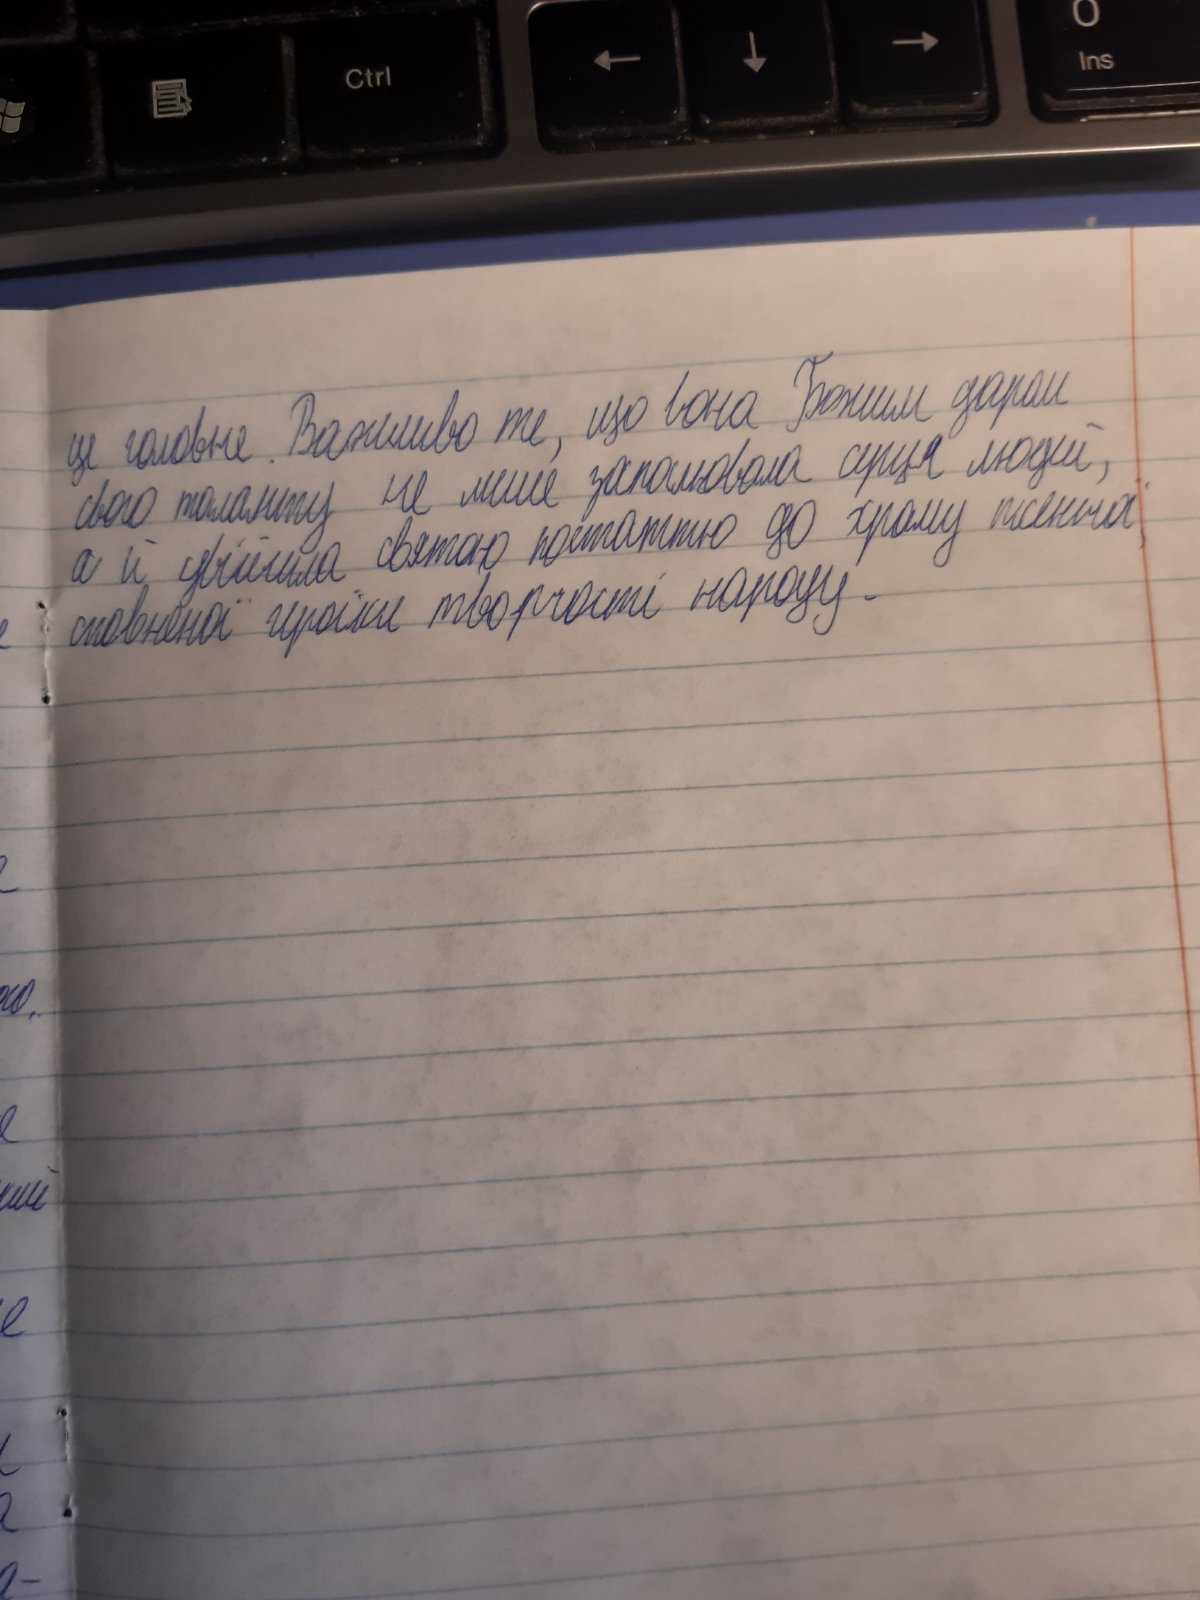 Ctrl
←
↓
→
0
Ins
це головне. Важливо те, що вона Божим даром
свого таланту не лише запалювала серця людей,
а й увійшла святою постаттю до храму пісенної,
сповненої героїки творчості народу.